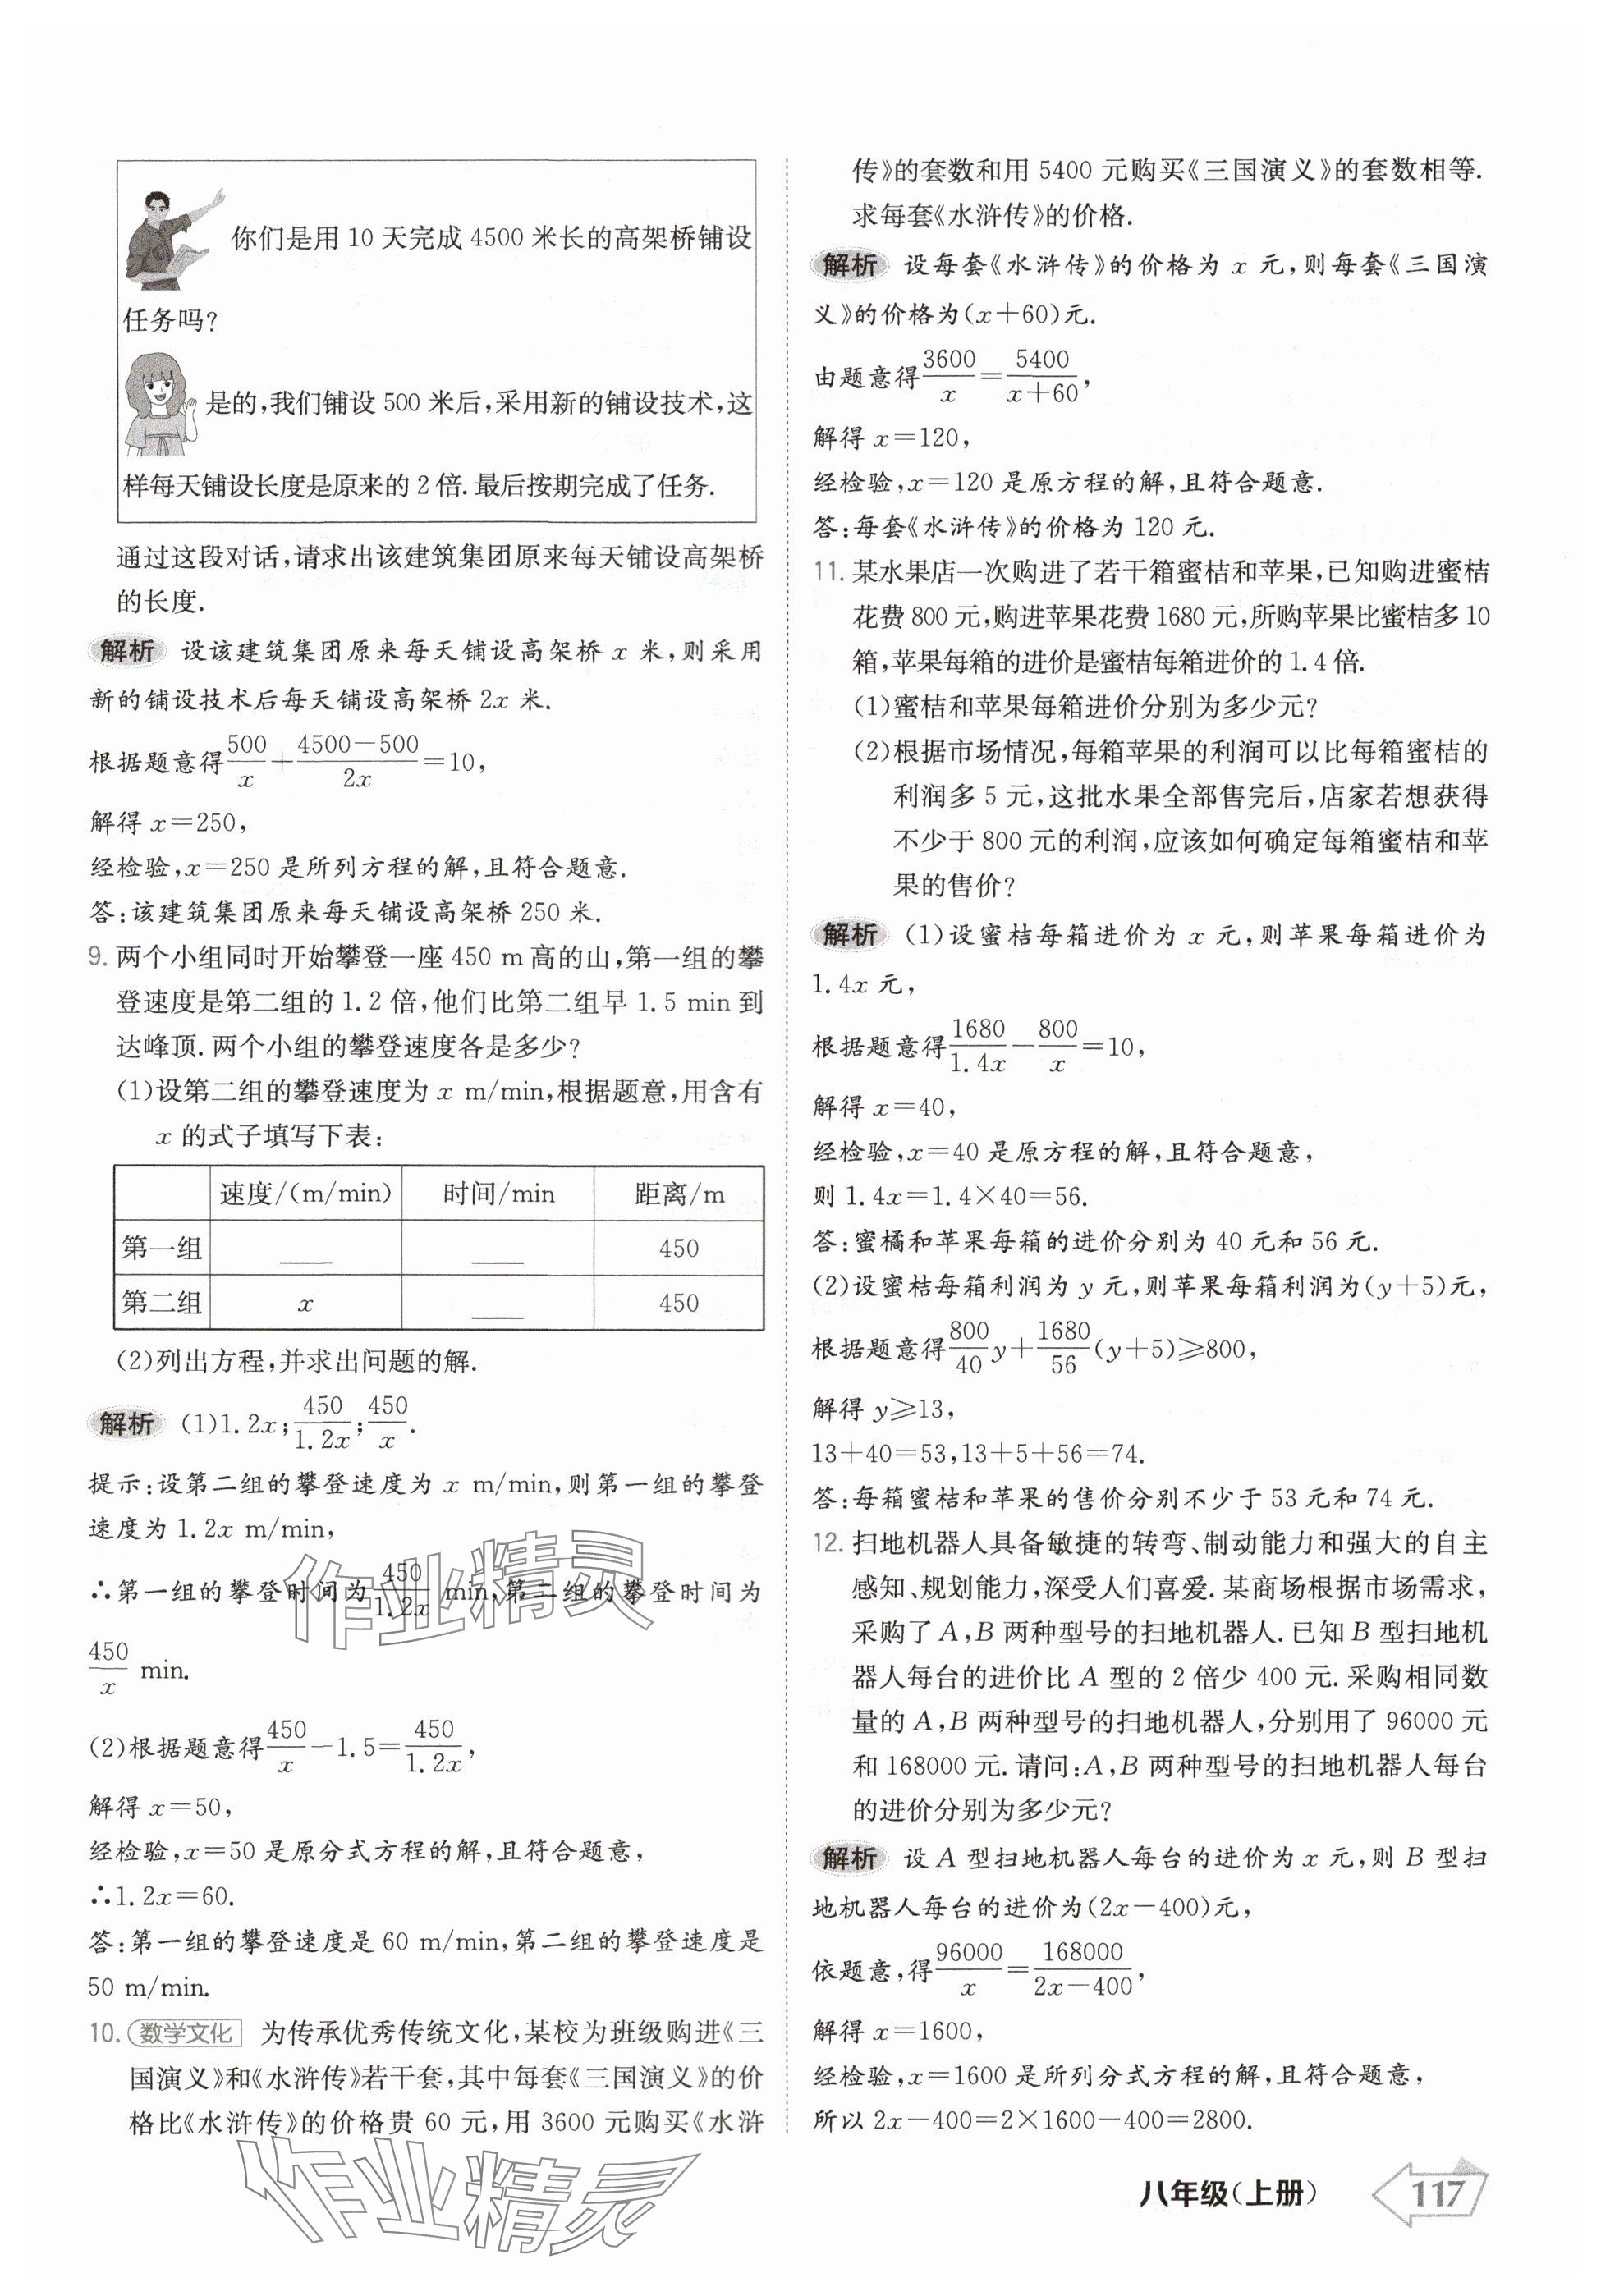 你们是用 10 天完成 4500 米长的高架桥铺设
任务吗?
是的,我们铺设 500 米后,采用新的铺设技术,这
样每天铺设长度是原来的 2 倍. 最后按期完成了任务.
通过这段对话,请求出该建筑集团原来每天铺设高架桥
的长度.
解析 设该建筑集团原来每天铺设高架桥 x 米,则采用
新的铺设技术后每天铺设高架桥 2x 米.
根据题意得500/x+(4500-500)/2x=10,
解得 x=250,
经检验,x=250 是所列方程的解,且符合题意.
答:该建筑集团原来每天铺设高架桥 250 米.
9. 两个小组同时开始攀登一座 450 m 高的山,第一组的攀
登速度是第二组的 1.2 倍,他们比第二组早 1.5 min 到
达峰顶. 两个小组的攀登速度各是多少?
(1)设第二组的攀登速度为 x m/min,根据题意,用含有
x 的式子填写下表:
速度/(m/min) 时间/min 距离/m
第一组 ____ ____ 450
第二组 x ____ 450
(2)列出方程,并求出问题的解.
解析 (1)1.2x;450/1.2x;450/x.
提示:设第二组的攀登速度为 x m/min,则第一组的攀登
速度为 1.2x m/min,
∴第一组的攀登时间为450/1.2x min,第二组的攀登时间为
450/x min.
(2)根据题意得450/x-1.5=450/1.2x,
解得 x=50,
经检验,x=50 是原分式方程的解,且符合题意,
∴1.2x=60.
答:第一组的攀登速度是 60 m/min,第二组的攀登速度是
50 m/min.
10. 数学文化 为传承优秀传统文化,某校为班级购进《三
国演义》和《水浒传》若干套,其中每套《三国演义》的价
格比《水浒传》的价格贵 60 元,用 3600 元购买《水浒
传》的套数和用 5400 元购买《三国演义》的套数相等.
求每套《水浒传》的价格.
解析 设每套《水浒传》的价格为 x 元,则每套《三国演
义》的价格为(x+60)元.
由题意得3600/x=5400/(x+60),
解得 x=120,
经检验,x=120 是原方程的解,且符合题意.
答:每套《水浒传》的价格为 120 元.
11. 某水果店一次购进了若干箱蜜桔和苹果,已知购进蜜桔
花费 800 元,购进苹果花费 1680 元,所购苹果比蜜桔多 10
箱,苹果每箱的进价是蜜桔每箱进价的 1.4 倍.
(1)蜜桔和苹果每箱进价分别为多少元?
(2)根据市场情况,每箱苹果的利润可以比每箱蜜桔的
利润多 5 元,这批水果全部售完后,店家若想获得
不少于 800 元的利润,应该如何确定每箱蜜桔和苹
果的售价?
解析 (1)设蜜桔每箱进价为 x 元,则苹果每箱进价为
1.4x 元,
根据题意得1680/1.4x-800/x=10,
解得 x=40,
经检验,x=40 是原方程的解,且符合题意,
则 1.4x=1.4×40=56.
答:蜜橘和苹果每箱的进价分别为 40 元和 56 元.
(2)设蜜桔每箱利润为 y 元,则苹果每箱利润为(y+5)元,
根据题意得800/40y+1680/56(y+5)≥800,
解得 y≥13,
13+40=53,13+5+56=74.
答:每箱蜜桔和苹果的售价分别不少于 53 元和 74 元.
12. 扫地机器人具备敏捷的转弯、制动能力和强大的自主
感知、规划能力,深受人们喜爱. 某商场根据市场需求,
采购了 A,B 两种型号的扫地机器人. 已知 B 型扫地机
器人每台的进价比 A 型的 2 倍少 400 元. 采购相同数
量的 A,B 两种型号的扫地机器人,分别用了 96000 元
和 168000 元. 请问:A,B 两种型号的扫地机器人每台
的进价分别为多少元?
解析 设 A 型扫地机器人每台的进价为 x 元,则 B 型扫
地机器人每台的进价为(2x-400)元,
依题意,得96000/x=168000/(2x-400),
解得 x=1600,
经检验,x=1600 是所列分式方程的解,且符合题意,
所以 2x-400=2×1600-400=2800.
作业精灵
作业精灵
八年级(上册) 117